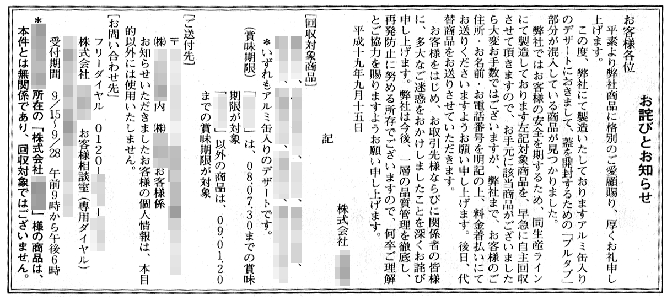 お詫びとお知らせ
お客様各位
平素より弊社商品に格別のご愛顧賜り、厚くお礼申し
上げます。
この度、弊社にて製造いたしておりますアルミ缶入り
のデザートにおきまして、蓋を開封するための「プルタブ」
部分が混入している商品が見つかりました。
弊社ではお客様の安全を期するため、同生産ライン
にて製造しております左記対象商品を、早急に自主回収
させて頂きますので、お手元に該当商品がございました
ら大変お手数ではございますが、弊社まで、お客様のご
住所、お名前、お電話番号を明記の上、料金着払いにて
お送りくださいますようお願い申し上げます。後日、代
替商品をお送りさせていただきます。
お客様をはじめ、お取引先様ならびに関係者の皆様
に、多大なご迷惑をおかけしましたことを深くお詫び
申し上げます。弊社は今後、一層の品質管理を徹底し、
再発防止に努める所存でございますので、何卒ご理解
とご協力を賜りますようお願い申し上げます。
平成十九年九月十五日
株式会社
記
【回収対象商品】
*いずれもアルミ缶入りのデザートです。
(賞味期限)
「 」は、08.07.30までの賞味
期限が対象
「 」以外の商品は、09.01.20
までの賞味期限が対象
【ご送付先】
〒
(株) 内 (株) お客様係
お知らせいただきましたお客様の個人情報は、本目
的以外には使用いたしません。
【お問い合わせ先】
フリーダイヤル 0120-
株式会社 お客様相談室(専用ダイヤル)
受付期間 9/15~9/28 午前9時から午後6時
* 所在の「株式会社 」様の商品は、
本件とは無関係であり、回収対象ではございません。